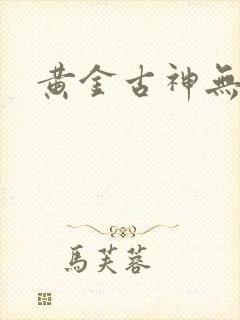 黃金古神無
馬芙蓉